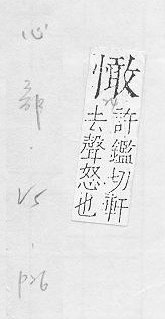 許鑑切軒
去聲怒也
心部.V5.p26